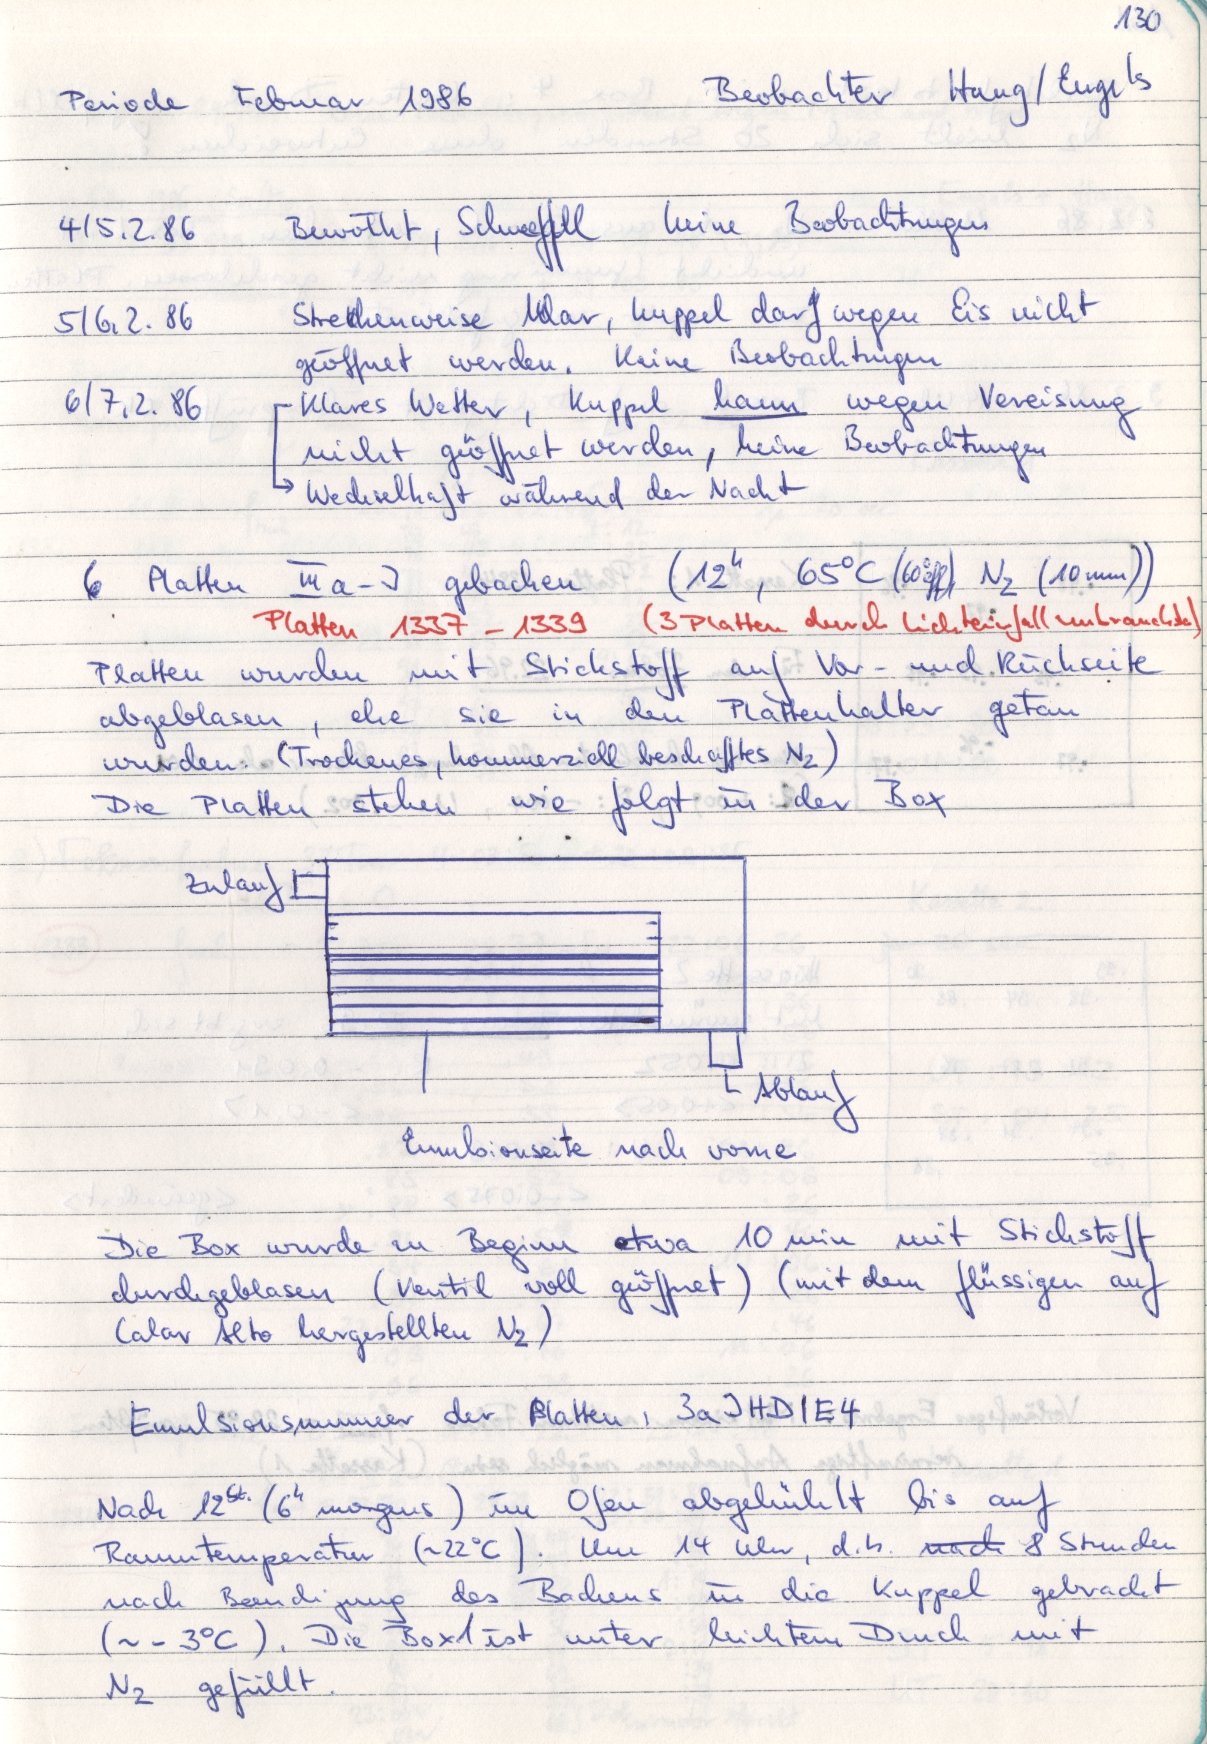 130
Periode Februar 1986 Beobachter Haug/Engels
4/5.2.86 Bewölkt, Schneefall keine Beobachtungen
5/6.2.86 Streckenweise klar, Kuppel darf wegen Eis nicht
geöffnet werden. Keine Beobachtungen
6/7.2.86 Klares Wetter, Kuppel kann wegen Vereisung
nicht geöffnet werden, keine Beobachtungen
Wechselhaft während der Nacht
6 Platten IIIa-J gebacken (12h, 65°C (60° eff), N2 (10 min))
Platten 1337 - 1339 (3 Platten durch Lichteinfall unbrauchbar)
Platten wurden mit Stickstoff auf Vor- und Rückseite
abgeblasen, ehe sie in den Plattenhalter getan
wurden. (Trockenes, kommerziell beschafftes N2)
Die Platten stehen wie folgt in der Box
Zulauf
Ablauf
Emulsionseite nach vorne
Die Box wurde zu Beginn etwa 10 min mit Stickstoff
durchgeblasen (Ventil voll geöffnet) (mit dem flüssigen auf
Calar Alto hergestellten N2)
Emulsionsnummer der Platten: 3aJHD1E4
Nach 12 St. (6h morgens) im Ofen abgekühlt bis auf
Raumtemperatur (~22°C). Um 14 Uhr, d.h. nach 8 Stunden
nach Beendigung des Backens in die Kuppel gebracht
(~ -3°C). Die Box 1 ist unter leichtem Druck mit
N2 gefüllt.